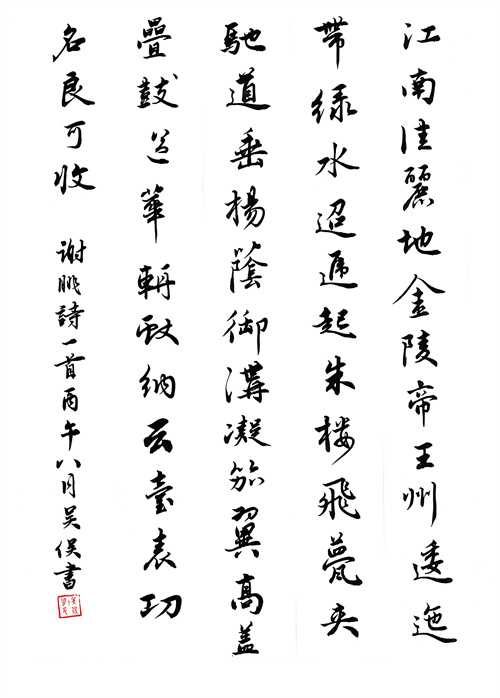 江南佳麗地金陵帝王州逶迤
帶绿水迢遞起朱楼飛甍夹
馳道垂楊蔭御溝凝笳翼高盖
疊鼓送華輈献納云臺表功
名良可收 謝朓詩一首丙午八月吴書